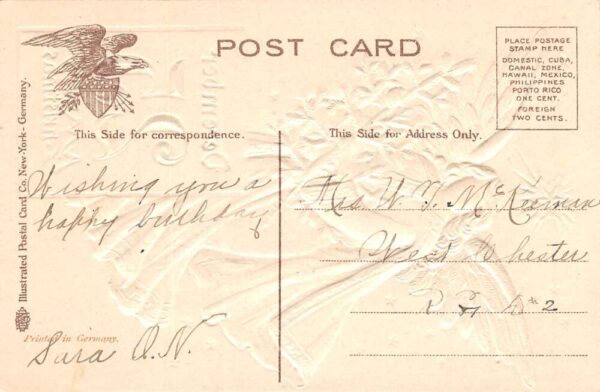 POST CARD
PLACE POSTAGE
STAMP HERE
DOMESTIC, CUBA,
CANAL ZONE,
HAWAII, MEXICO,
PHILIPPINES
PORTO RICO
ONE CENT.
FOREIGN
TWO CENTS.
Illustrated Postal Card Co. New-York - Germany.
This Side for correspondence.
This Side for Address Only.
Wishing you a
happy birthday
Sara
Printed in Germany.
Mrs W. McKeeman
West Chester
2